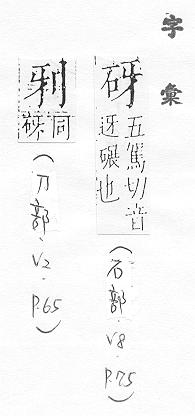 字彙
砑
五駕切音
迓碾也
(石部.V8.P.75)
同
砑
(刀部.V2.P.65)